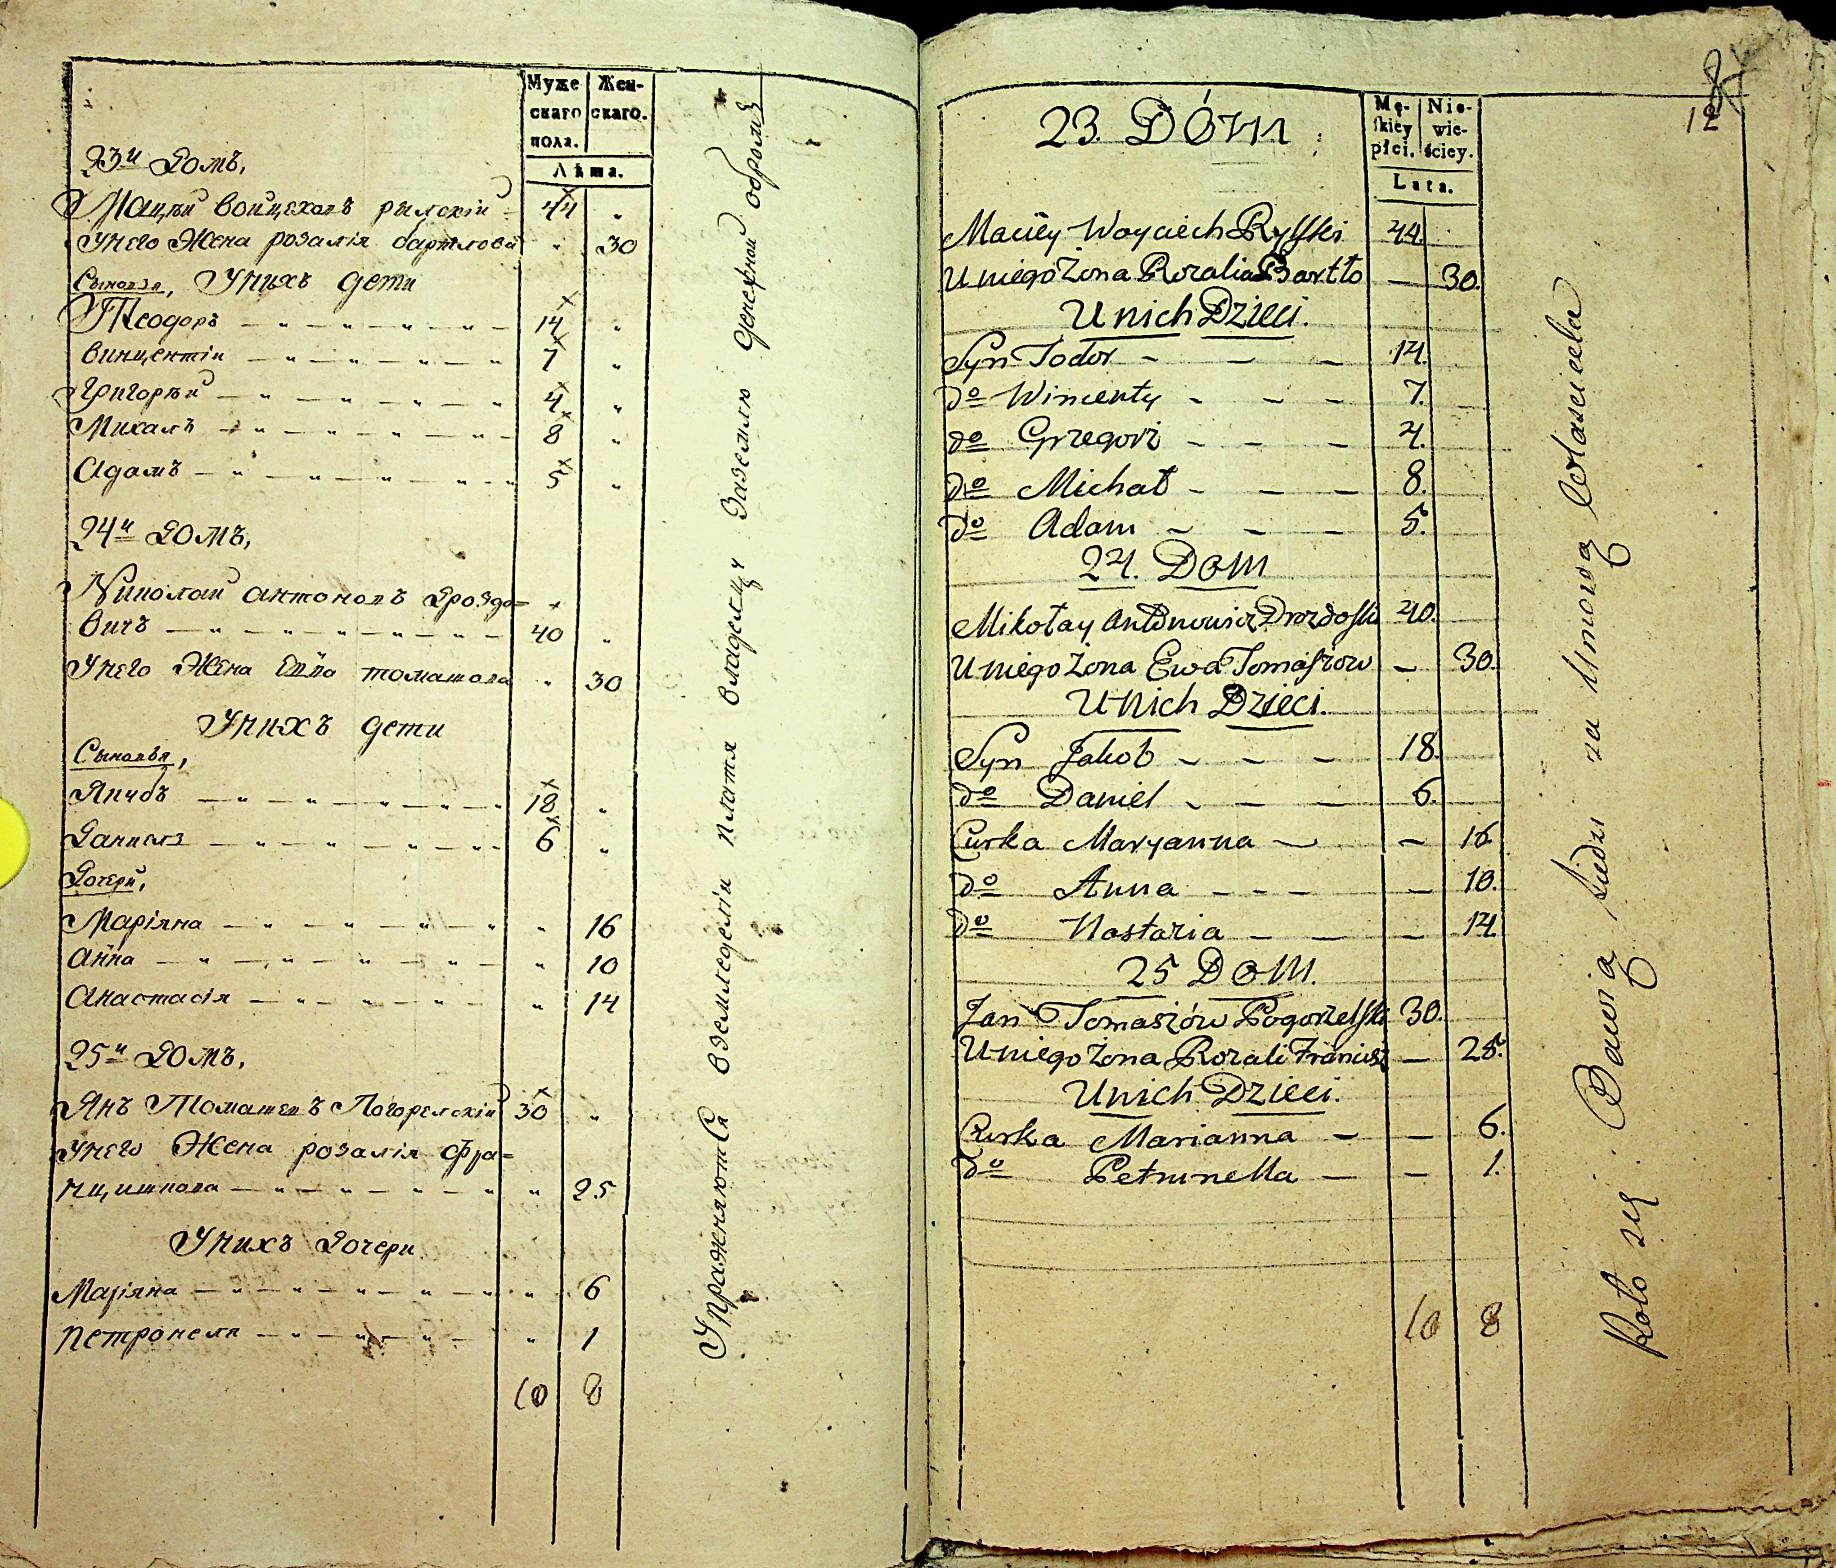 Муже
скаго
пола.
Жен-
скаго.
Лѣта.
23й Домъ,
Мацѣй Войцеховъ рылскій 44 "
Унего Жена розалія бартлова " 30
Сыновья, Унихъ дети
Теодоръ — " — " — " — " — 14 "
Винцентіи — " — " — " — " — 7 "
Григорѣй — " — " — " — " — 4 "
Михалъ — " — " — " — " — 8 "
Адамъ — " — " — " — " — 5 "
24й Домъ,
Николай Антоновъ Дроздо=
вичъ — " — " — " — " — 40 "
Унего Жена Евва томашова " 30
Унихъ дети
Сыновья,
Якубъ — " — " — " — " — 18 "
Даніелъ — " — " — " — " — 6 "
Дочери,
Маріяна — " — " — " — " 16
Анна — " — " — " — " 10
Анастасія — " — " — " — " 14
25й Домъ,
Янъ Томашевъ Погорелскій 30 "
Унего Жена розалія Фра=
нцишкова — " — " — " — " 25
Унихъ Дочери
Маріяна — " — " — " — " 6
Петронеля — " — " — " — " 1
10 8
Упражняются вземледеліи платя владелцу Заземлю денежной оброкъ
87
12
Mę-
skiey
płci.
Nie-
wie-
ściey.
Lata.
23. Dóm
Maciey Woyciech Rylski 44.
U niego Żona Rozalia Bartło — 30.
U nich Dzieci.
Syn Todor — — — 14.
do Wincenty — — — 7.
do Grzegorz — — — 4.
do Michał — — — 8.
do Adam — — — 5.
24. Dom
Mikołay Antonowicz Drozdoski 40.
U niego Żona Ewa Tomaszow — 30.
U nich Dzieci.
Syn Jakob — — — 18.
do Daniel — — — 6.
Curka Maryanna — — 16
do Anna — — — — 10.
do Nastazia — — — 14
25 Dom.
Jan Tomaszów Pogorzelski 30.
U niego Żona Rozali Franisz — 25.
U nich Dzieci.
Curka Marianna — — 6.
do Petrunella — — 1.
10 8
Roló się Bawią siedzi za Umową Własciciela